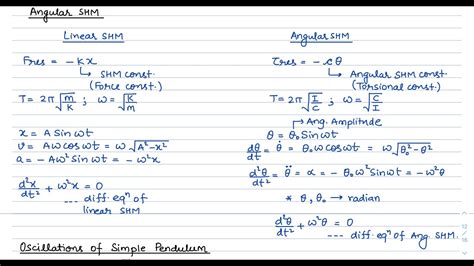 Angular SHM
Linear SHM
Fres = -Kx
↳ SHM const.
(Force const.)
T = 2π√(m/K) ; ω = √(K/m)
x = A Sin ωt
v = Aω cos ωt = ω√(A²-x²)
a = -Aω² sin ωt = -ω²x
d²x/dt² + ω²x = 0
--- diff. eqⁿ of
linear SHM
Angular SHM
τres = -cθ
↳ Angular SHM const.
(Torsional const.)
T = 2π√(I/C) ; ω = √(C/I)
↱ Ang. Amplitude
θ = θ₀ Sin ωt
dθ/dt = θ̇ = θ₀ω cos ωt = ω√(θ₀²-θ²)
d²θ/dt² = θ̈ = α = -θ₀ω² sin ωt = -ω²θ
* θ, θ₀ → radian
d²θ/dt² + ω²θ = 0
--- diff. eqⁿ of Ang. SHM
Oscillations of Simple Pendulum